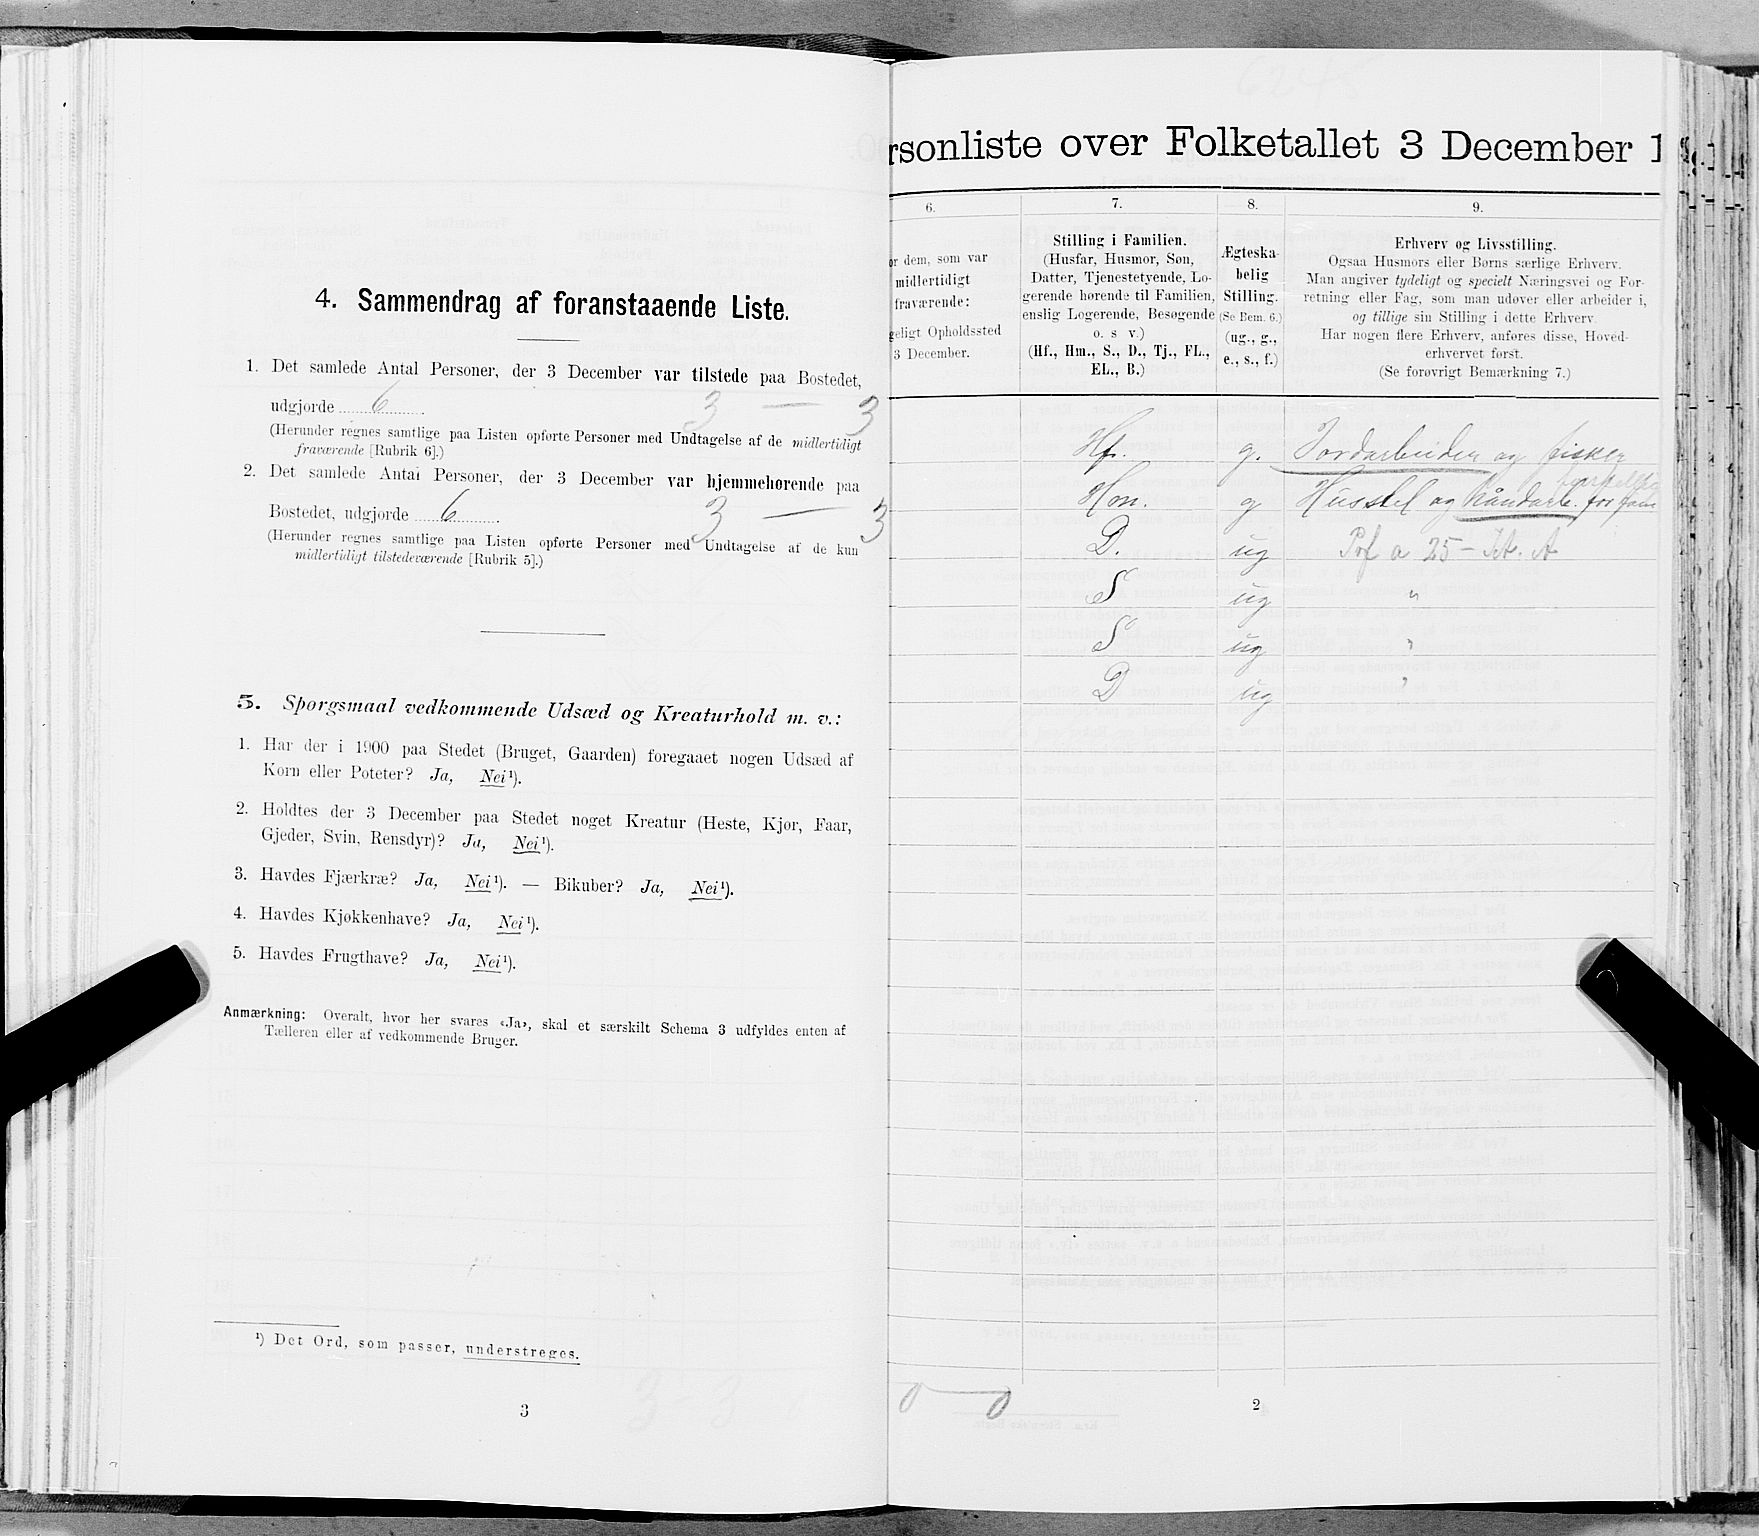 4. Sammendrag af foranstaaende Liste.
1. Det samlede Antal Personer, der 3 December var tilstede paa Bostedet,
udgjorde 6 3 — 3
(Herunder regnes samtlige paa Listen opførte Personer med Undtagelse af de midlertidigt
fraværende [Rubrik 6].)
2. Det samlede Antal Personer, der 3 December var hjemmehørende paa
Bostedet, udgjorde 6 3 — 3
(Herunder regnes samtlige paa Listen opførte Personer med Undtagelse af de kun
midlertidigt tilstedeværende [Rubrik 5].)
5. Spørgsmaal vedkommende Udsæd og Kreaturhold m. v.:
1. Har der i 1900 paa Stedet (Bruget, Gaarden) foregaaet nogen Udsæd af
Korn eller Poteter? Ja, Nei¹).
2. Holdtes der 3 December paa Stedet noget Kreatur (Heste, Kjør, Faar,
Gjeder, Svin, Rensdyr)? Ja, Nei¹).
3. Havdes Fjærkræ? Ja, Nei¹). — Bikuber? Ja, Nei¹).
4. Havdes Kjøkkenhave? Ja, Nei¹).
5. Havdes Frugthave? Ja, Nei¹).
Anmærkning: Overalt, hvor her svares «Ja», skal et særskilt Schema 3 udfyldes enten af
Tælleren eller af vedkommende Bruger.
¹) Det Ord, som passer, understreges.
3 - 3
3
rsonliste over Folketallet 3 December 1
6. 7. 8. 9.
or dem, som var
midlertidigt
fraværende:
geligt Opholdssted
3 December.
Stilling i Familien.
(Husfar, Husmor, Søn,
Datter, Tjenestetyende, Lo-
gerende hørende til Familien,
enslig Logerende, Besøgende
o. s v.)
(Hf., Hm., S., D., Tj., FL.,
EL., B.)
Ægteska-
belig
Stilling.
(Se Bem. 6.)
(ug., g.,
e., s., f.)
Erhverv og Livsstilling.
Ogsaa Husmors eller Børns særlige Erhverv.
Man angiver tydeligt og specielt Næringsvei og For-
retning eller Fag, som man udøver eller arbeider i,
og tillige sin Stilling i dette Erhverv.
Har nogen flere Erhverv, anføres disse, Hoved-
erhvervet først.
(Se forøvrigt Bemærkning 7.)
Hf. g. Jordarbeider og fisker
Hm. g Husstel og Håndarb. for fam
D. ug
S ug "
S ug "
D ug "
0 — 0
2